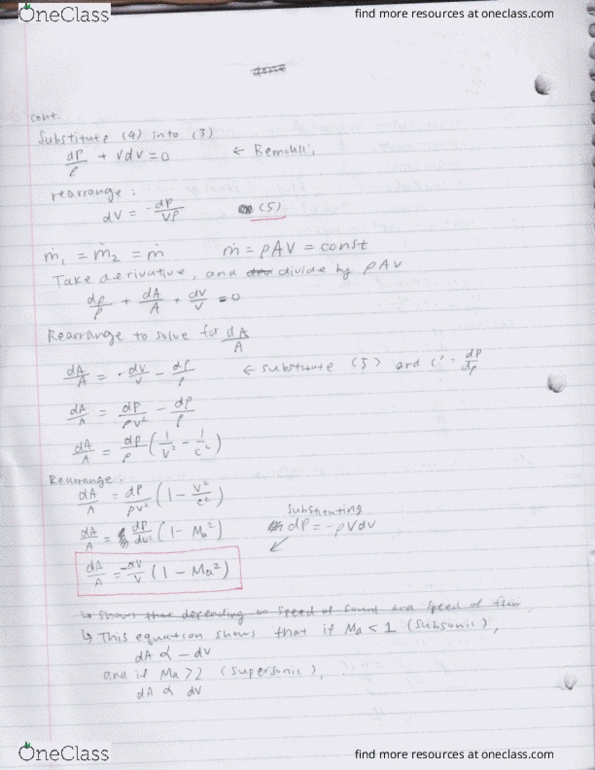 OneClass
find more resources at oneclass.com
done
cont.
Substitute (4) into (3)
dP/ρ + VdV = 0 ← Bernoulli
rearrange:
dV = -dP/Vρ (5)
ṁ₁ = ṁ₂ = ṁ ṁ = ρAV = const
Take derivative, and divide by ρAV
dρ/ρ + dA/A + dV/V = 0
Rearrange to solve for dA/A
dA/A = -dV/V - dρ/ρ ← substitute (5) and c² = dP/dρ
dA/A = dP/ρV² - dρ/ρ
dA/A = dP/ρ (1/V² - 1/c²)
Rearrange:
dA/A = dP/ρV² (1 - V²/c²)
Substituting
dP = -ρVdV
dA/A = dP/dV² (1 - Ma²)
dA/A = -dV/V (1 - Ma²)
↳ Shows that depending on speed of sound and speed of flow,
↳ This equation shows that if Ma < 1 (Subsonic),
dA ∝ -dV
and if Ma > 2 (supersonic),
dA ∝ dV
OneClass
find more resources at oneclass.com